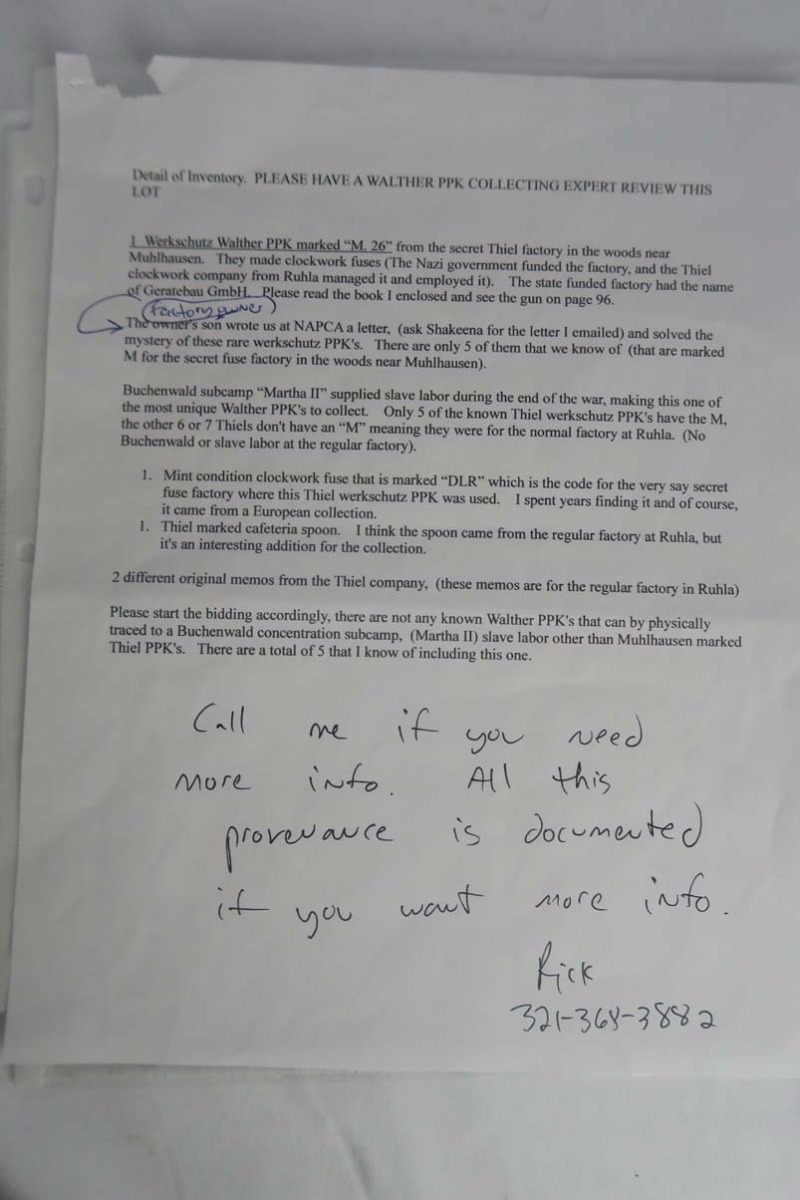 Detail of Inventory. PLEASE HAVE A WALTHER PPK COLLECTING EXPERT REVIEW THIS
LOT
1 Werkschutz Walther PPK marked “M. 26” from the secret Thiel factory in the woods near
Muhlhausen. They made clockwork fuses (The Nazi government funded the factory, and the Thiel
clockwork company from Ruhla managed it and employed it). The state funded factory had the name
of Geratebau GmbH. Please read the book I enclosed and see the gun on page 96.
(factory owner)
The owner's son wrote us at NAPCA a letter, (ask Shakeena for the letter I emailed) and solved the
mystery of these rare werkschutz PPK's. There are only 5 of them that we know of (that are marked
M for the secret fuse factory in the woods near Muhlhausen).
Buchenwald subcamp “Martha II” supplied slave labor during the end of the war, making this one of
the most unique Walther PPK's to collect. Only 5 of the known Thiel werkschutz PPK's have the M,
the other 6 or 7 Thiels don't have an “M” meaning they were for the normal factory at Ruhla. (No
Buchenwald or slave labor at the regular factory).
1. Mint condition clockwork fuse that is marked “DLR” which is the code for the very say secret
fuse factory where this Thiel werkschutz PPK was used. I spent years finding it and of course,
it came from a European collection.
1. Thiel marked cafeteria spoon. I think the spoon came from the regular factory at Ruhla, but
it's an interesting addition for the collection.
2 different original memos from the Thiel company, (these memos are for the regular factory in Ruhla)
Please start the bidding accordingly, there are not any known Walther PPK's that can by physically
traced to a Buchenwald concentration subcamp, (Martha II) slave labor other than Muhlhausen marked
Thiel PPK's. There are a total of 5 that I know of including this one.
Call me if you need
more info. All this
provenance is documented
if you want more info.
Rick
321-368-3882